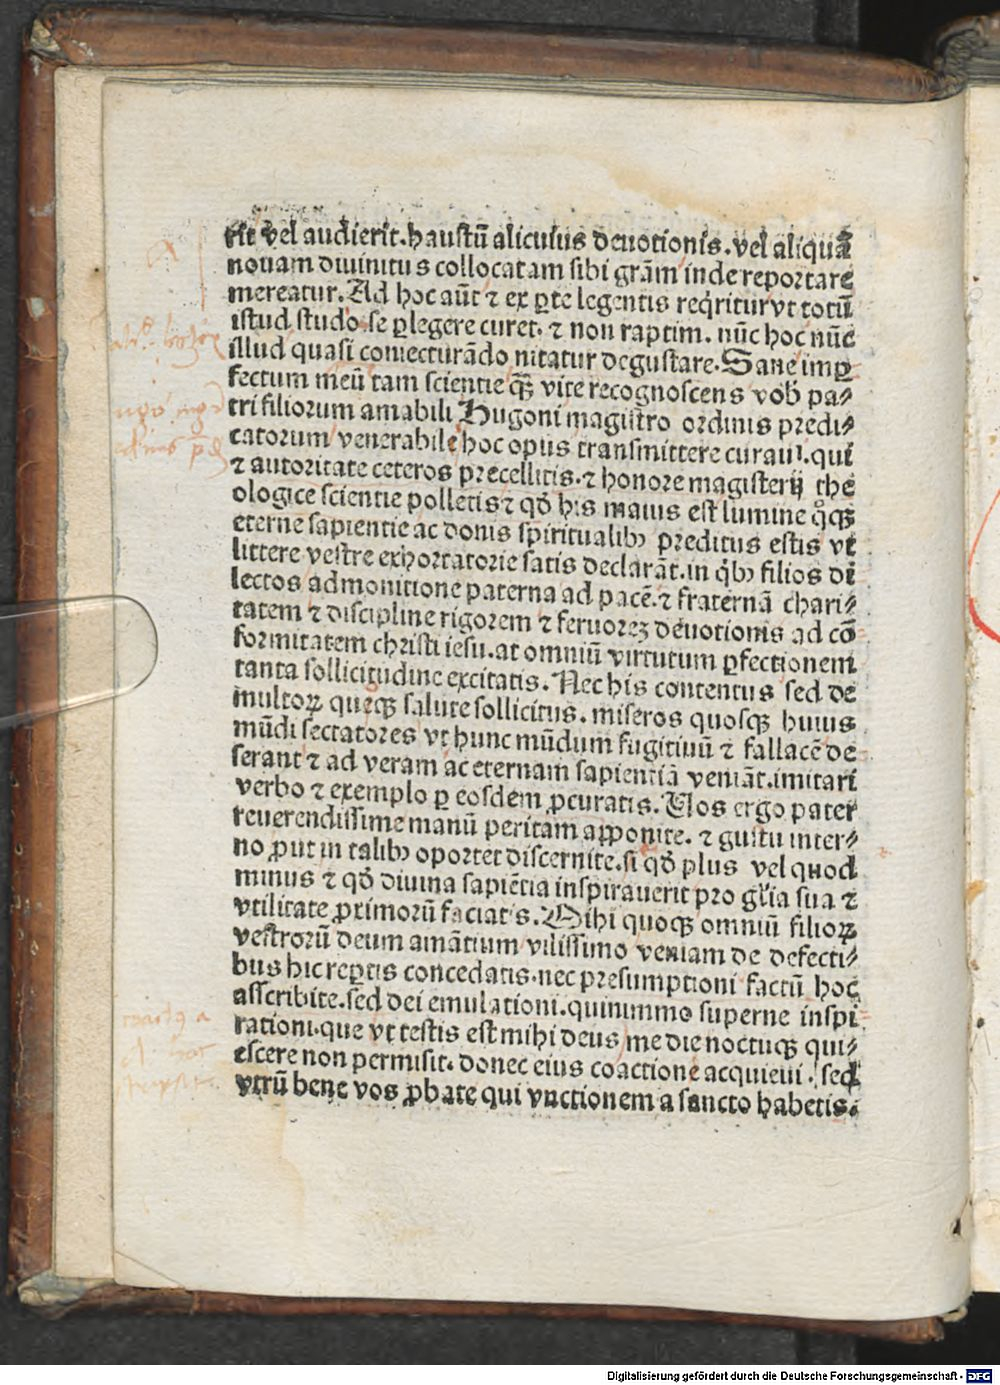 rit vel audierit. haustū alicuius deuotionis. vel aliquā
nouam diuinitus collocatam sibi grām inde reportare
mereatur. Ad hoc aūt ⁊ ex ꝑte legentis reqͥritur vt totū
istud studo se ꝑlegere curet. ⁊ non raptim. nūc hoc nūc
illud quasi coniecturādo nitatur degustare. Sane imꝑ
fectum meū tam scientie qꝫ vite recognoscens vob̄ pa⸗
tri filiorum amabili Hugoni magistro ordinis predi⸗
catorum venerabile hoc opus transmittere curaui. qui
⁊ autoritate ceteros precellitis. ⁊ honore magisterij the
ologice scientie polletis ⁊ qd̄ his maius est lumine qͦqꝫ
eterne sapientie ac donis spiritualibꝫ preditus estis vt
littere vestre exhortatorie satis declarāt. in qͥbꝫ filios di
lectos admonitione paterna ad pacē. ⁊ fraternā chari⸗
tatem ⁊ discipline rigorem ⁊ feruorēꝫ deuotionis ad cō
formitatem christi iesu. at omniū virtutum ꝑfectionem
tanta sollicitudine excitatis. Nec his contentus sed de
multoꝝ queqꝫ salute sollicitus. miseros quosqꝫ huius
mūdi sectatores vt hunc mūdum fugitiuū ⁊ fallacē de
serant ⁊ ad veram ac eternam sapientiā veniāt. imitari
verbo ⁊ exemplo ꝑ eosdem ꝓcuratis. Uos ergo pater
reuerendissime manū peritam apponite. ⁊ gustu inter⸗
no ꝓut in talibꝫ oportet discernite. si qd̄ plus vel quod
minus ⁊ qd̄ diuina sapiētia inspirauerit pro glīa sua ⁊
vtilitate ꝓximorū faciatis. Mihi quoqꝫ omniū filioꝝ
vestrorū deum amātium vilissimo veniam de defecti⸗
bus hic reꝑtis concedatis. nec presumptioni factū hoc
asscribite. sed dei emulationi. quinimmo superne inspi
rationi. que vt testis est mihi deus me die noctuqꝫ qui⸗
escere non permisit. donec eius coactione acquieui. sed
vtrū bene vos ꝓbate qui vnctionem a sancto habetis.
Digitalisierung gefördert durch die Deutsche Forschungsgemeinschaft - DFG